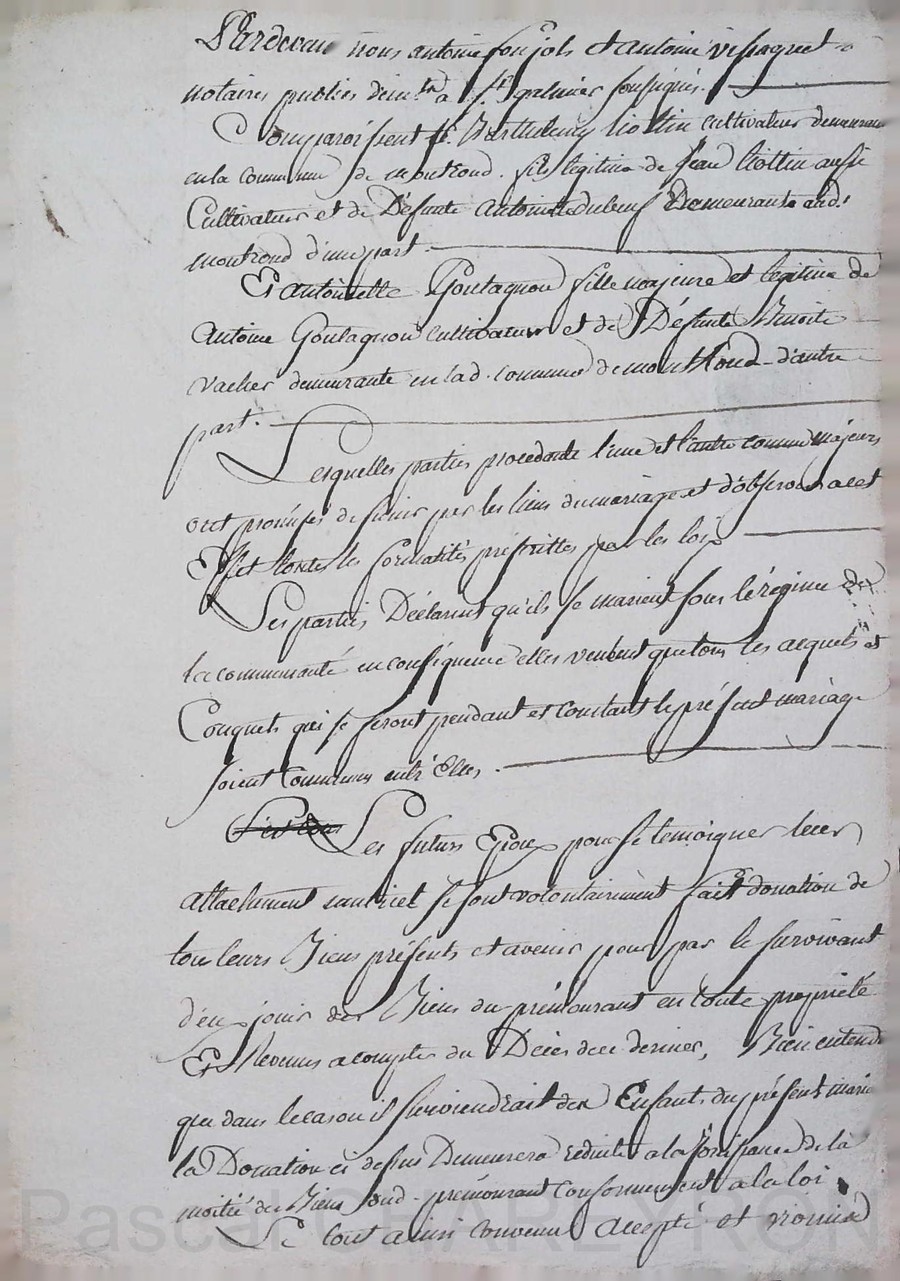 Pardevant nous antoine foujols et antoine vissaguet
notaires publics dem.rt a St galmier soussignés.
Comparoissent st. Barthelemy liottin cultivateur demeurant
en la commune de montrond. fils legitime de Jean liottin aussi
Cultivateur et de Défunte antoinette dubeuf Demeurants aud.
montrond d'une part.
Et antoinette Goutagnon fille majeure et legitime de
antoine Goutagnon cultivateur et de Défunte Benoite
vacher demeurante en lad. commune de montrond d'autre
part.
Lesquelles parties procedante l'une et l'autre comme majeurs
ont promises de s'unir par les liens du mariage et d'observer a cet
Effet toutes les formalités préscrittes par les loix
Les parties Déclarent qu'ils se marient sous le régime de
la communauté en conséquence elles veulent que tous les acquets et
Conquets qui se feront pendant et constant le présent mariage
soient communs entr'Elles.
Les futurs Epoux pour se temoigner leur
attachement mutuel se sont volontairement fait donation de
tou leurs Biens présents et avenir pour par le survivant
d'en jouir des Biens du prémourant en toute propriété
Et Revenus a compter du Décès de ce dernier, Bien entendu
que dans le cas ou il surviendrait des Enfants du présent maria
la Donation ci dessus Demeurera réduite a la Jouissance de la
moitié des Biens dud. prémourant conformement a la loi.
Le tout ainsi convenu accepté et promis
Pascal CHAREYRON